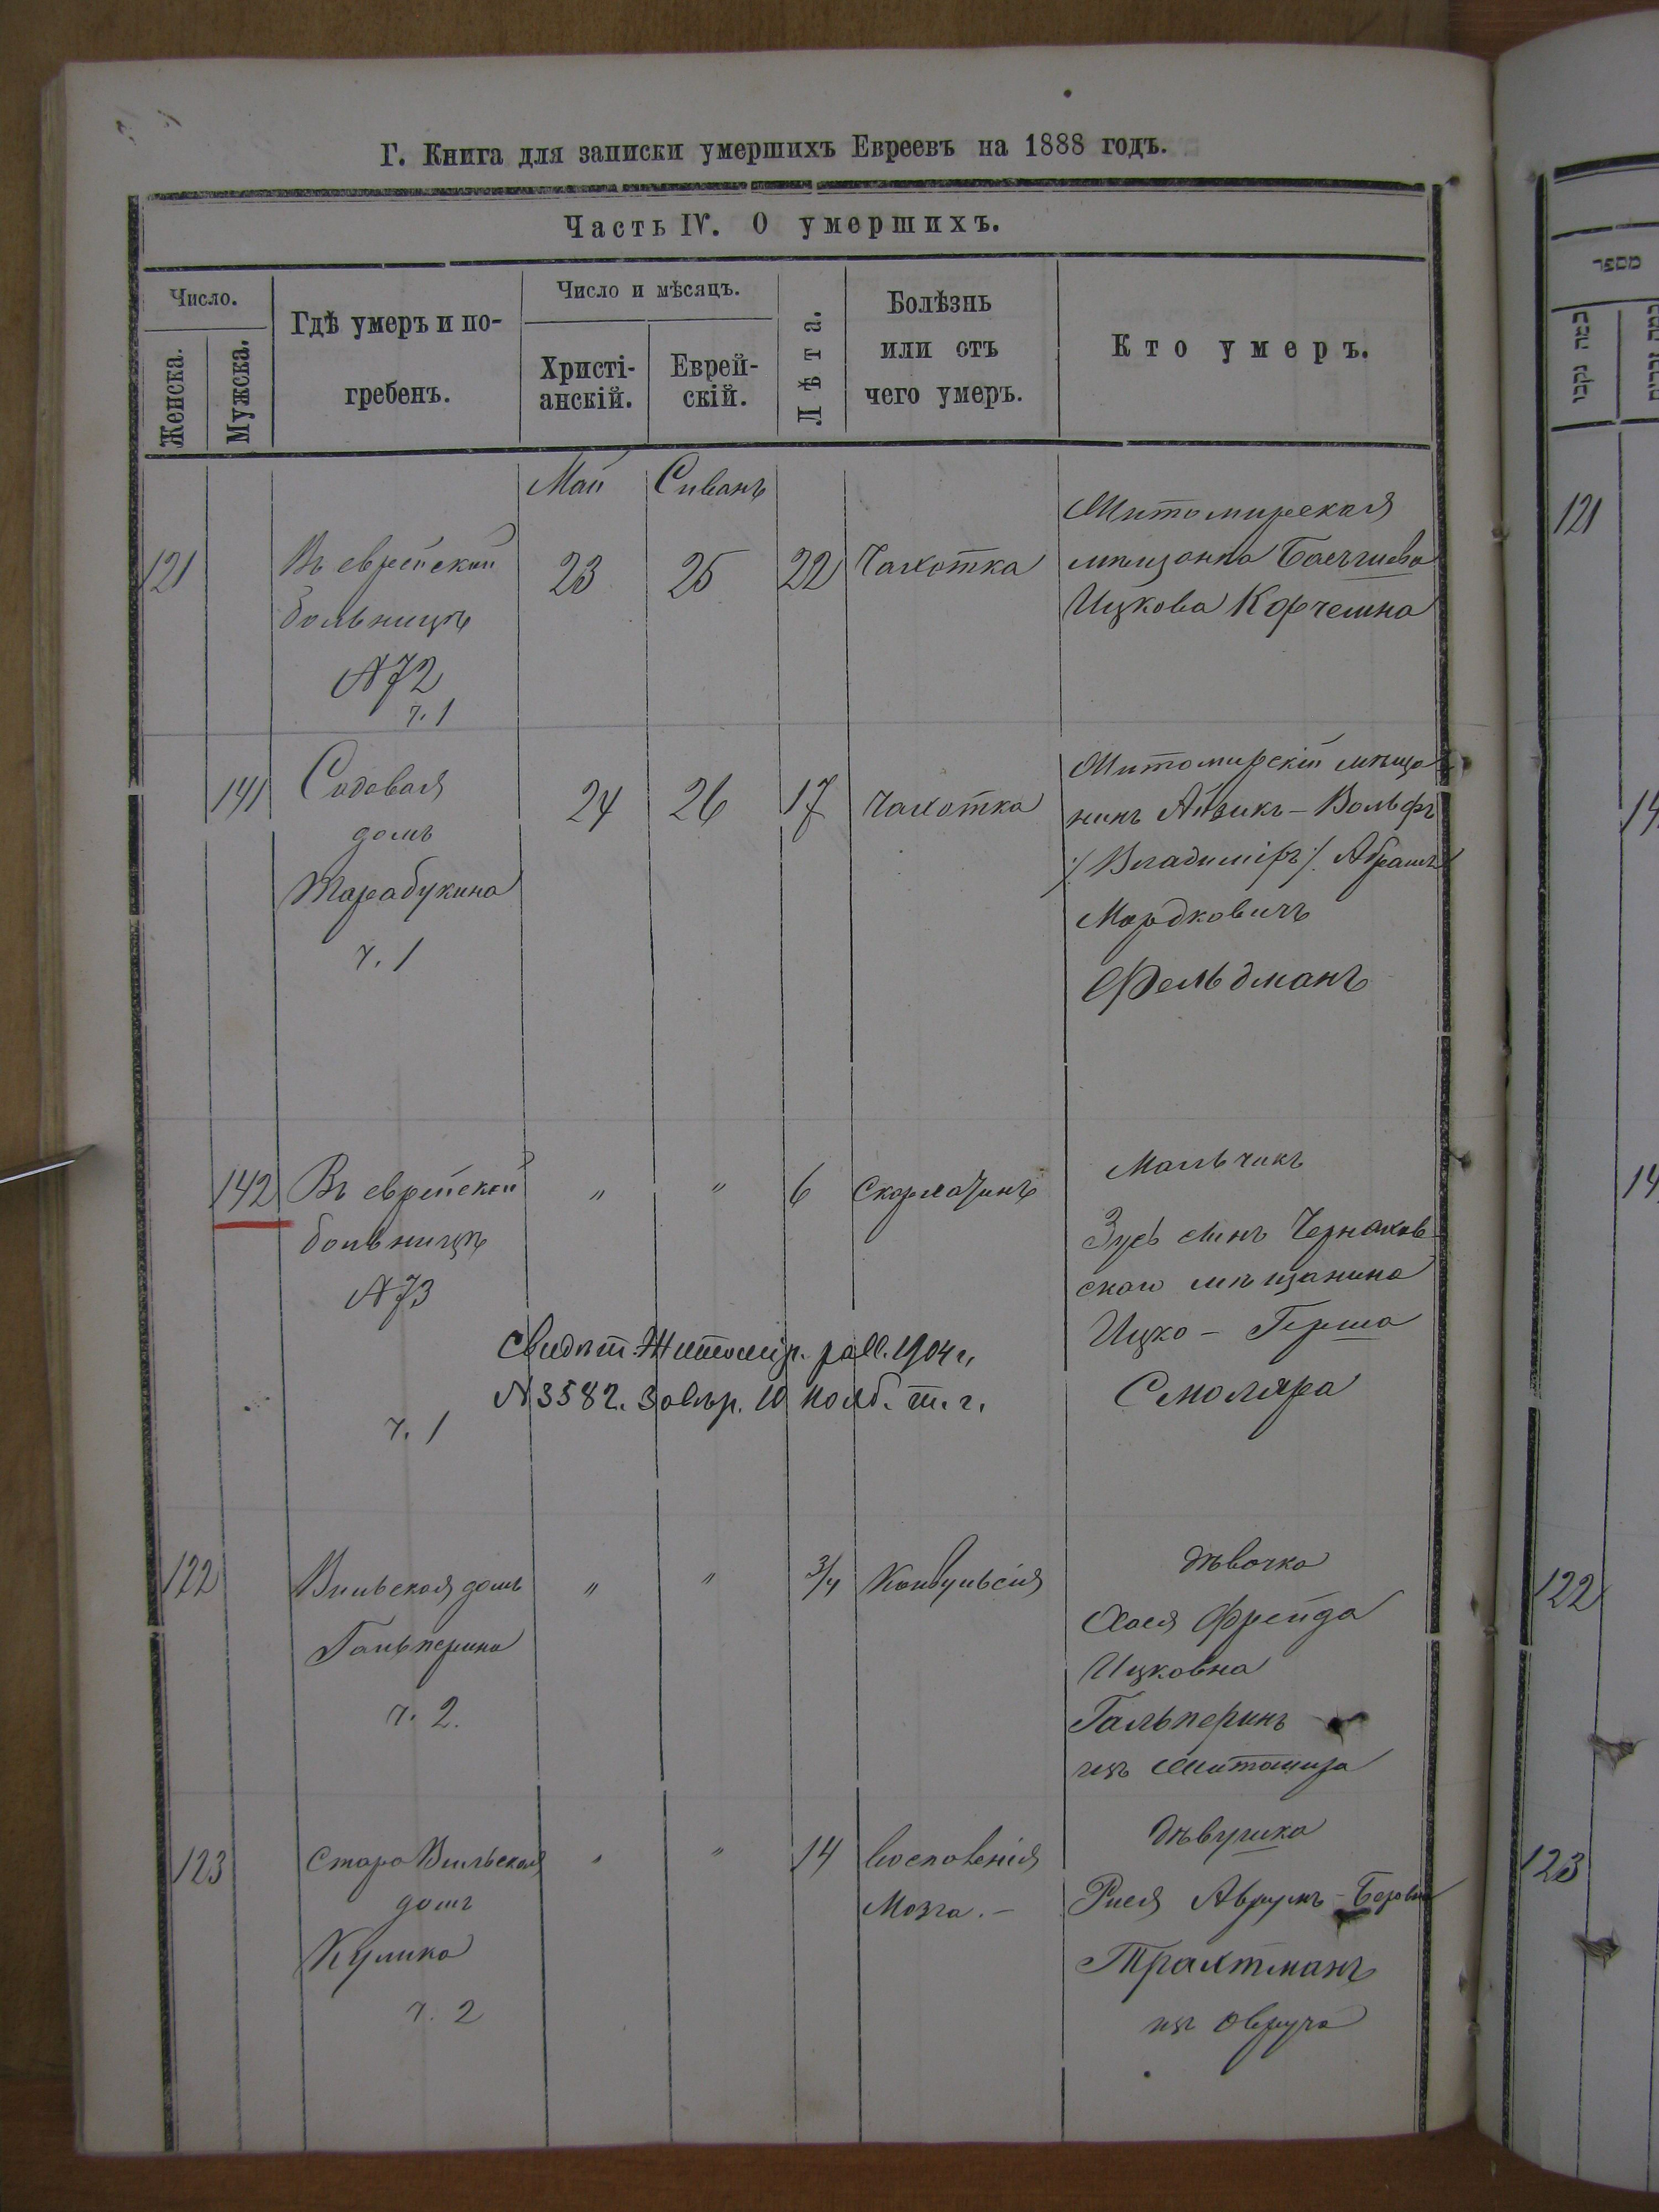 Г. Книга для записки умершихъ Евреевъ на 1888 годъ.
Часть IV. О умершихъ.
Число.
Женска.
Мужска.
Гдѣ умеръ и по-
гребенъ.
Число и мѣсяцъ.
Христі-
анскій.
Еврей-
скій.
Лѣта.
Болѣзнь
или отъ
чего умеръ.
Кто умеръ.
Май Сиванъ
121
Въ еврейской
больницѣ
№72
ч. 1
23
25
22
Чахотка
Житомирская
мѣщанка
Ицкова Корчемна
141
Садовая
домъ
Тарабукина
ч. 1
24
26
17
Чахотка
Житомирскій мѣща
нинъ Айзикъ-Вольфъ
/:Владиміръ:/ Абрамъ
Мордковичъ
Фельдманъ
142
Въ еврейской
больницѣ
№73
ч. 1
"
"
6
Скарлатинъ
Мальчикъ
Зусь сынъ Черняхов-
скаго мѣщанина
Ицко - Герша
Смоляра
Свидѣт. Житомір. равв. 1904 г.
№3582. Завѣр. 10 Нояб. т. г.
122
Вильская домъ
Гальперина
ч. 2.
"
"
3/4
Конвульсія
Дѣвочка
Хася Фрейда
Ицковна
Гальперинъ
изъ Житомира
123
Старо Вильская
домъ
Кулика
ч. 2
"
"
14
Воспаленія
Мозга. -
Дѣвушка
Рися Аврумъ - Беровна
Трахтманъ
изъ Овруча
מספר
121
14
14
122
123